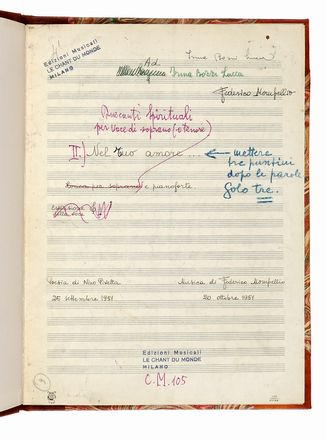 Edizioni Musicali
LE CHANT DU MONDE
MILANO
Ad
Irma Bozzi Lucca
Federico Mompellio
Due canti spirituali
per voce di soprano (o tenore)
II.) Nel tuo amore...
← mettere
tre puntini
dopo le parole
Solo tre.
e pianoforte
Poesia di Nino
25 settembre 1951
Musica di Federico Mompellio
20 ottobre 1951
Edizioni Musicali
LE CHANT DU MONDE
MILANO
C.M. 105